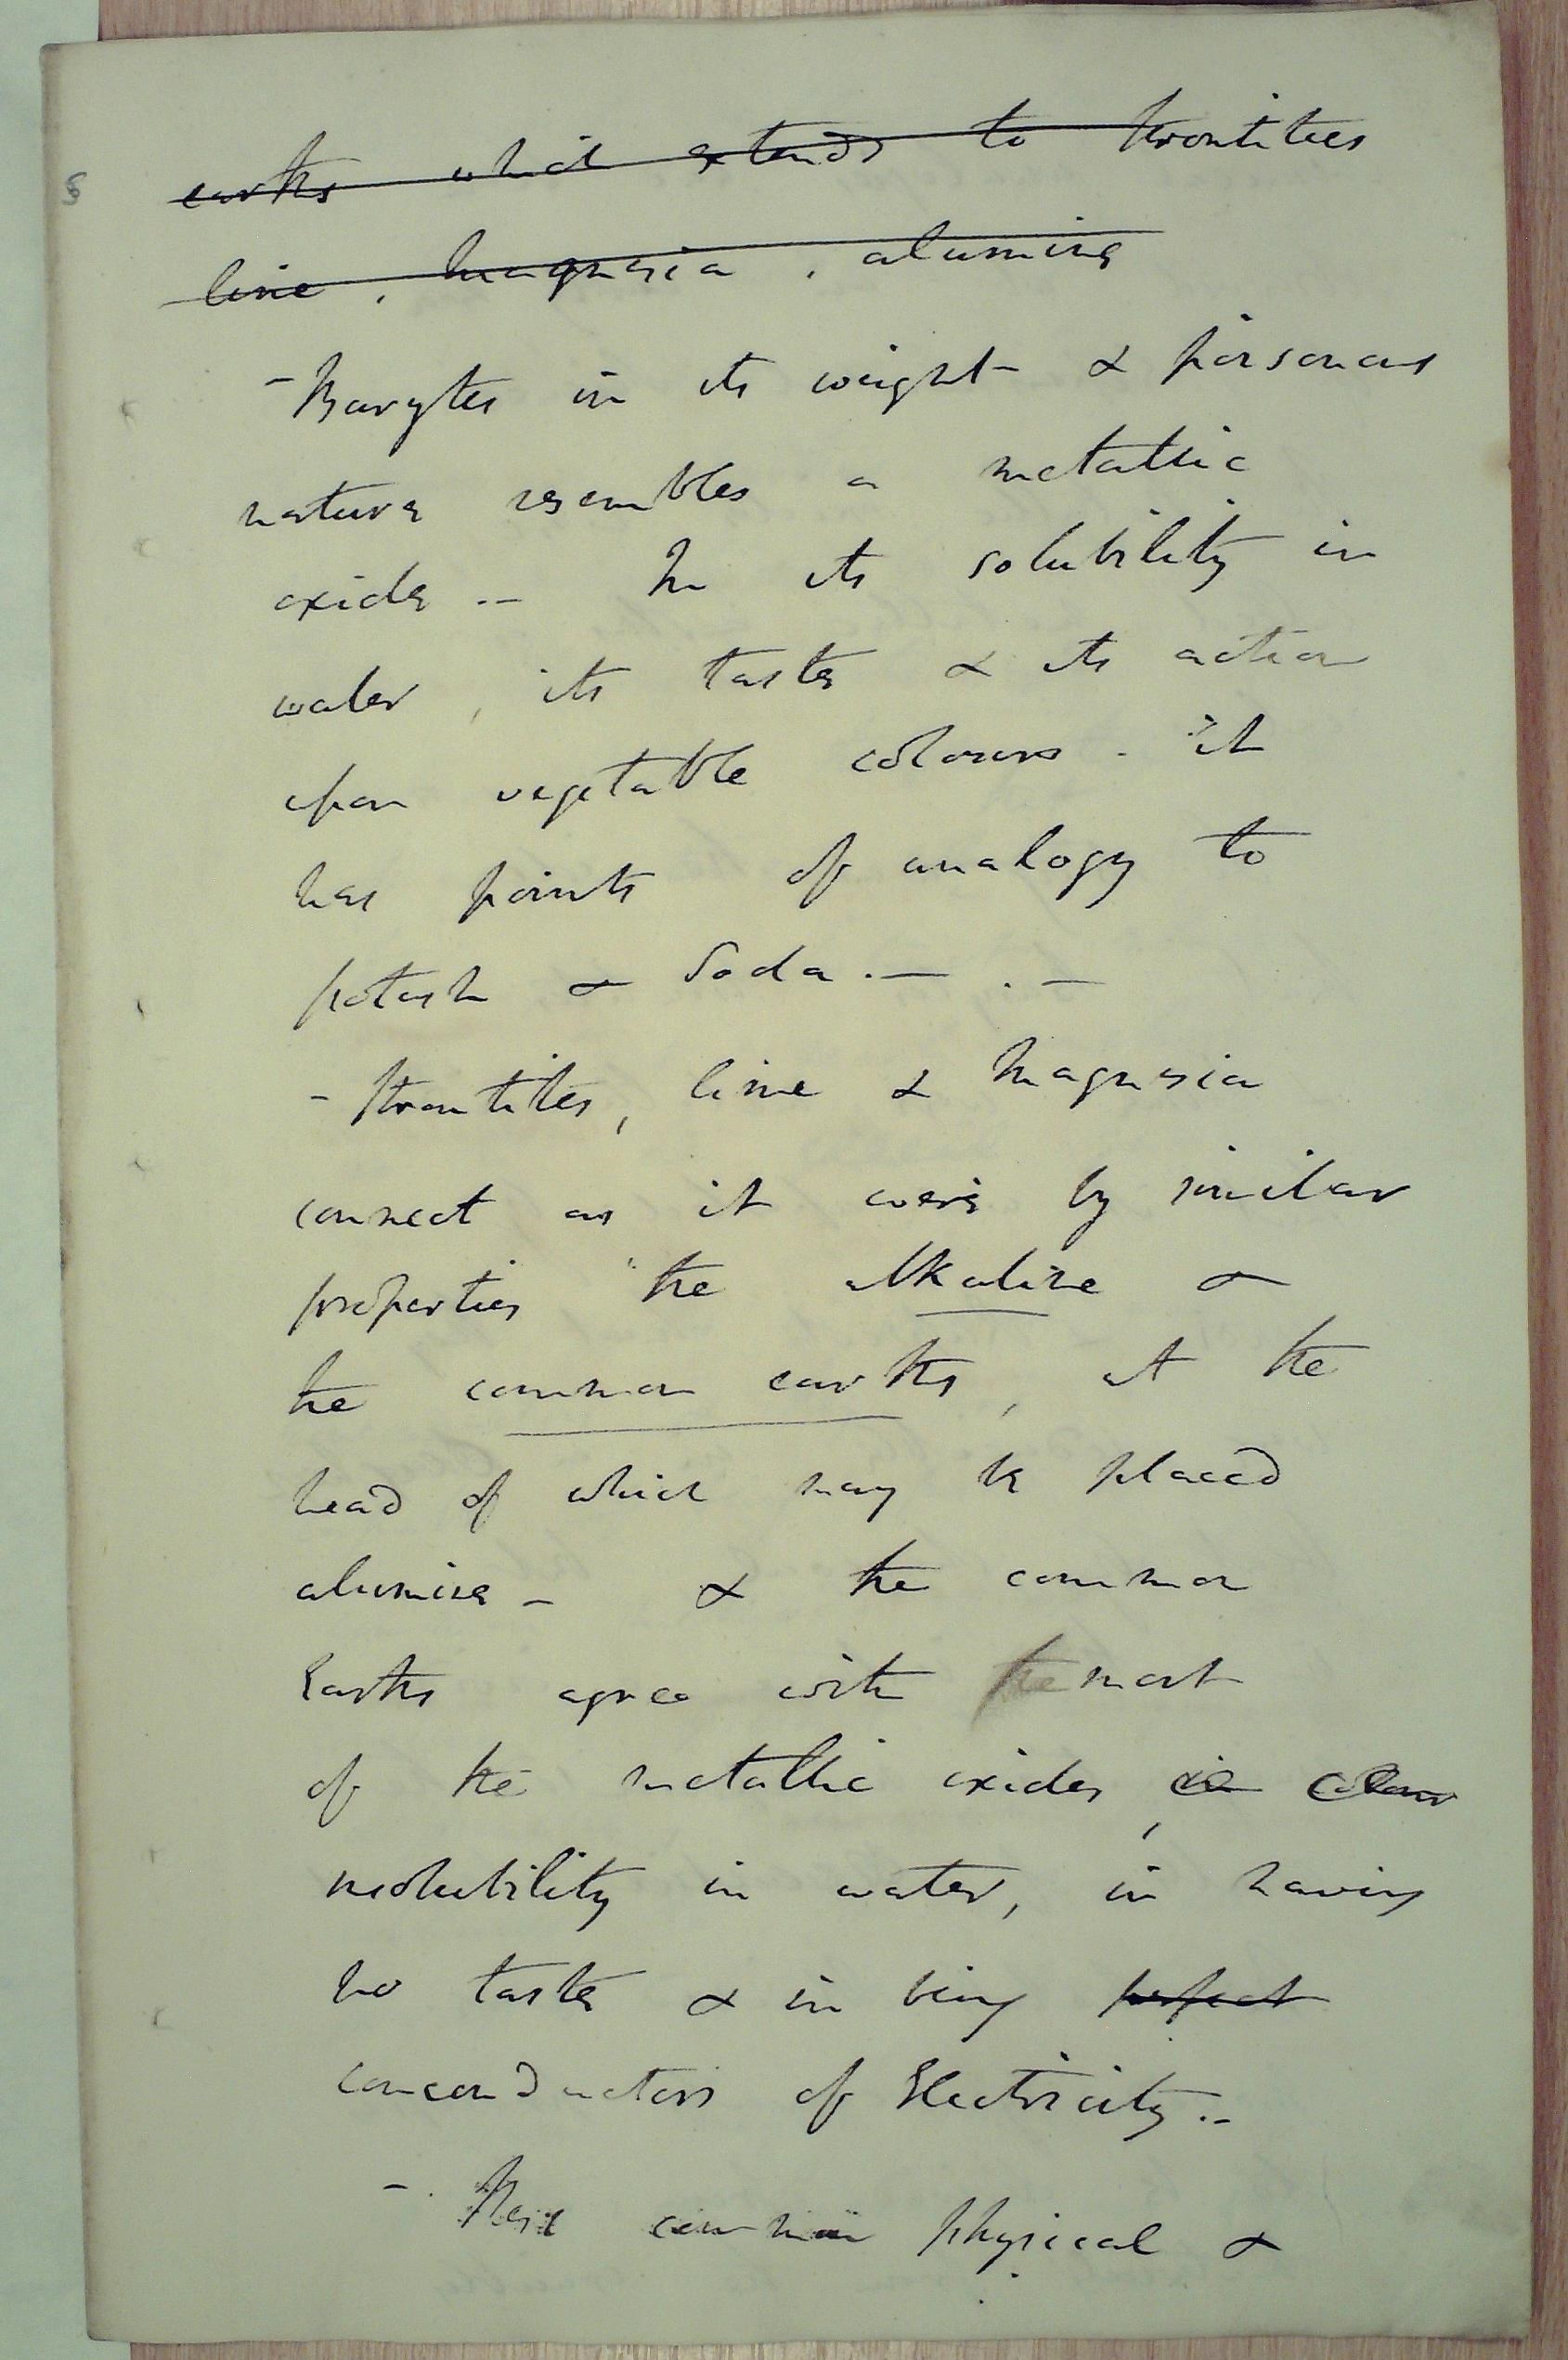 5
earths which extends to Strontites
lime, magnesia, alumine
- Barytes in its weight & poisonous
nature resembles a metallic
oxide .- In its solubility in
water, its taste & its action
upon vegetable colours. it
has points of analogy to
potash & Soda .— .—
- Strontites, lime & Magnesia
connect as it were by similar
properties the alkaline &
the common earths, at the
head of which may be placed
alumine - & the common
Earths agree with the most
of the metallic oxides, in colour
insolubility in water, in having
no taste & in being perfect
nonconductors of Electricity.-
-. These common physical &